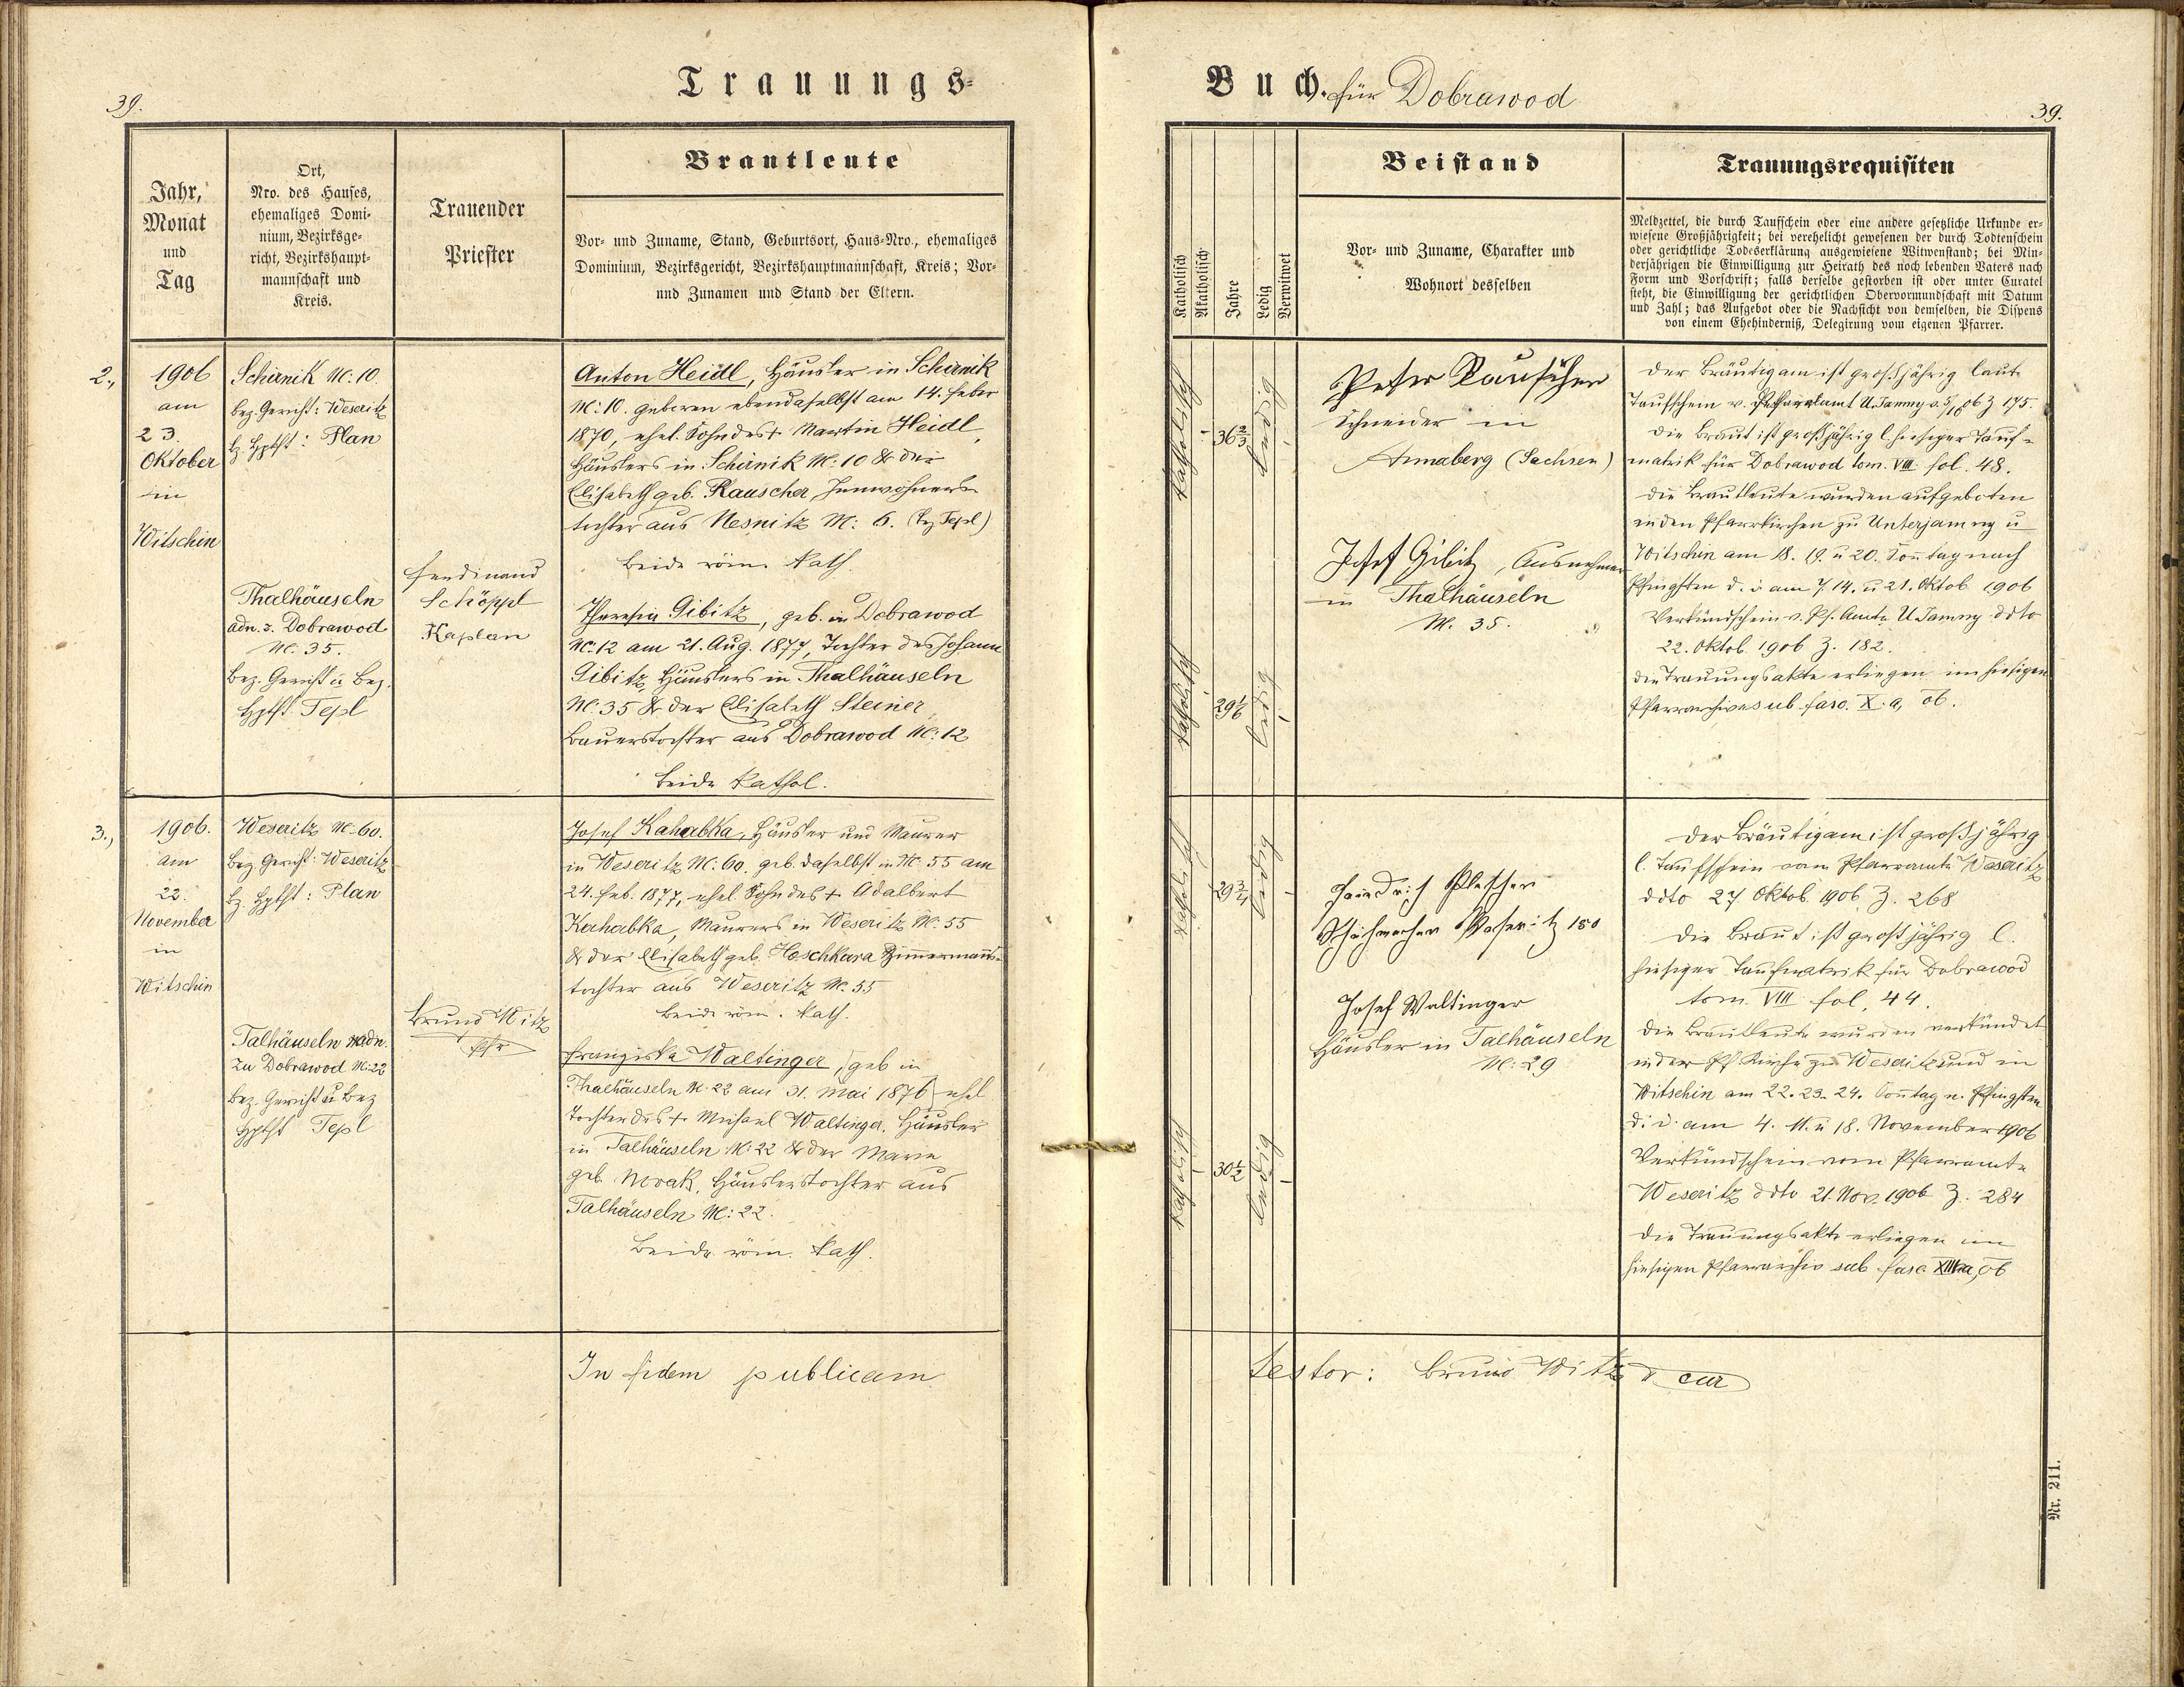 39.
Trauungs-
Jahr,
Monat
und
Tag
Ort,
Nro. des Hauses,
ehemaliges Domi-
nium, Bezirksge-
richt, Bezirkshaupt-
mannschaft und
Kreis.
Trauender
Priester
Brautleute
Vor- und Zuname, Stand, Geburtsort, Haus-Nro., ehemaliges
Dominium, Bezirksgericht, Bezirkshauptmannschaft, Kreis; Vor-
und Zunamen und Stand der Eltern.
2.,
1906
am
23.
Oktober
in
Witschin
Schirnik Nc: 10.
bez. Gericht: Weseritz
bz. Hptft: Plan
Thalhäuseln
adn. z. Dobrawod
Nc. 35.
Bez. Gericht u Bez.
Hptft. Tepl
Ferdinand
Schöppl
Kaplan
Anton Heidl, Häusler in Schirnik
Nc: 10. geboren ebendaselbst am 14. Feber
1870, ehel. Sohn des + Martin Heidl,
Häuslers in Schirnik Nc: 10 & der
Elisabeth geb. Rauscher, Inwohners-
tochter aus Nesnitz Nc: 6. (bz Tepl)
beide röm. kath.
Theresia Gibitz, geb. in Dobrawod
Nc: 12 am 21. Aug. 1877, Tochter des Johann
Gibitz, Häuslers in Thalhäuseln
Nc: 35 & der Elisabeth Steiner,
Bauerstochter aus Dobrawod Nc: 12
beide kathol.
3.,
1906.
am
22.
November
in
Witschin
Weseritz Nc: 60.
Bez. Gericht: Weseritz
bz. Hptft: Plan
Talhäuseln adn.
zu Dobrawod Nc: 22
Bez. Gericht u Bez
Hptft Tepl
Bruno Witz
Pfr
Josef Kahabka, Häusler und Maurer
in Weseritz Nc: 60. geb. daselbst in Nc. 55 am
24. Feb. 1877, ehel. Sohn des + Adalbert
Kahabka, Maurers in Weseritz Nc. 55
& der Elisabeth geb. Hoschkara Zimmermanns-
tochter aus Weseritz Nc. 55
beide röm. kath.
Franziska Waltinger, geb in
Thalhäuseln Nc. 22 am 31. Mai 1876, ehel
Tochter des + Michael Waltinger, Häusler
in Talhäuseln Nc: 22 & der Maria
geb. Novak, Häuslerstochter aus
Talhäuseln Nc: 22.
Beide röm. kath.
In fidem publicam
Buch. für Dobrawod
39.
Katholisch
Akatholisch
Jahre
Ledig
Verwitwet
Beistand
Vor- und Zuname, Charakter und
Wohnort desselben
Trauungsrequisiten
Meldzettel, die durch Taufschein oder eine andere gesetzliche Urkunde er-
wiesene Großjährigkeit; bei verehelicht gewesenen der durch Todtenschein
oder gerichtliche Todeserklärung ausgewiesene Witwenstand; bei Min-
derjährigen die Einwilligung zur Heirath des noch lebenden Vaters nach
Form und Vorschrift; falls derselbe gestorben ist oder unter Curatel
steht, die Einwilligung der gerichtlichen Obervormundschaft mit Datum
und Zahl; das Aufgebot oder die Nachsicht von demselben, die Dispens
von einem Ehehinderniß, Delegirung vom eigenen Pfarrer.
katholisch
36 2/3
ledig
Peter Rauscher
Schneider in
Annaberg (Sachsen)
katholisch
29 1/6
ledig
Josef Gibitz, Ausnehmer
in Thalhäuseln
Nc. 35.
Der Bräutigam ist großjährig laut
Taufschein v. Pfarramt U. Jamny v. 5/10 06 Z 175.
Die Braut ist großjährig l. hiesiger Tauf-
matrik für Dobrawod tom. VIII. fol. 48.
Die Brautleute wurden aufgeboten
in den Pfarrkirchen zu Unterjamny u
Witschin am 18. 19. u 20. Sontag nach
Pfingsten d. i am 7. 14. u 21. Oktob. 1906
Verkündschein v. Pf. Amte U Jamny ddto
22. Oktob. 1906 Z. 182.
die Trauungsakte erliegen im hiesigen
Pfarrarchive sub fasc. X. a, 06.
katholisch
29 3/4
ledig
Heinrich Pletscher
Schuhmacher Weseritz 150
katholisch
30 1/2
ledig
Josef Waltinger
Häusler in Talhäuseln
Nc: 29
Der Bräutigam ist großjährig
l. Taufschein vom Pfarramte Weseritz
ddto 27 Oktob. 1906, Z. 268
Die Braut ist großjährig l.
hiesiger Taufmatrik für Dobrawod
tom. VIII fol, 44.
Die Brautleute wurden verkündet
in der Pf. Kirche zu Weseritz und in
Witschin am 22. 23. 24. Sontag n. Pfingsten
d. i. am 4. 11. u 18. November 1906
Verkündschein vom Pfarramte
Weseritz ddto 21. Nov. 1906 Z. 284
Die Trauungsakte erliegen im
hiesigen Pfarrarchiv sub fasc. a, 06
testor: Bruno Witz cur
Nr. 211.